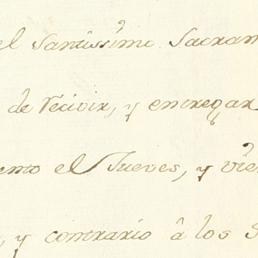 el Santissimo Sacram
de recivir, y entregar
ento el Jueves, y Vie
, y contrario â los S